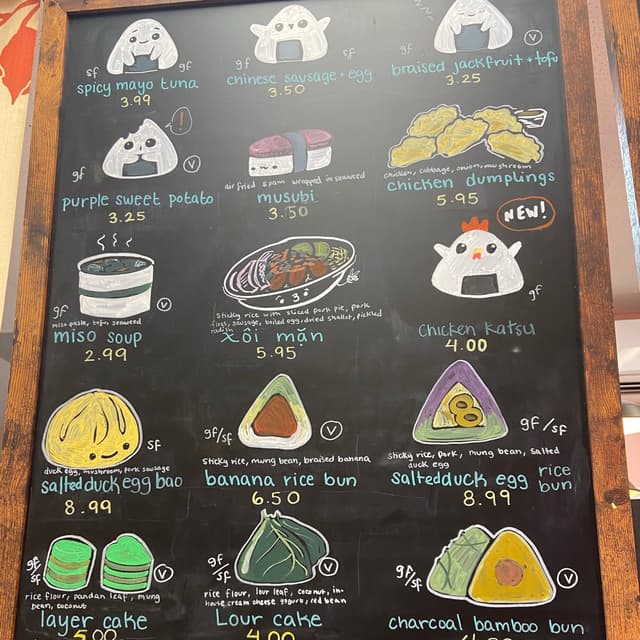 sf
gf
spicy mayo tuna
3.99
gf
sf
chinese sausage + egg
3.50
gf
V
braised jackfruit + tofu
3.25
gf
!
V
purple sweet potato
3.25
air fried spam wrapped in seaweed
musubi
3.50
chicken, cabbage, onion, mushroom
chicken dumplings
5.95
gf
V
miso paste, tofu, seaweed
miso soup
2.99
sticky rice with sliced pork pie, pork
floss, sausage, boiled egg, dried shallot, pickled
radish
xôi mặn
5.95
NEW!
gf
Chicken Katsu
4.00
sf
duck egg, mushroom, pork sausage
salted duck egg bao
8.99
gf/sf
V
sticky rice, mung bean, braised banana
banana rice bun
6.50
gf/sf
sticky rice, pork, mung bean, salted
duck egg
salted duck egg rice
bun
8.99
gf/sf
V
rice flour, pandan leaf, mung
bean, coconut
layer cake
5.00
gf/sf
V
rice flour, lour leaf, coconut, in-
house cream cheese yogurt, red bean
Lour cake
4.00
gf/sf
V
charcoal bamboo bun